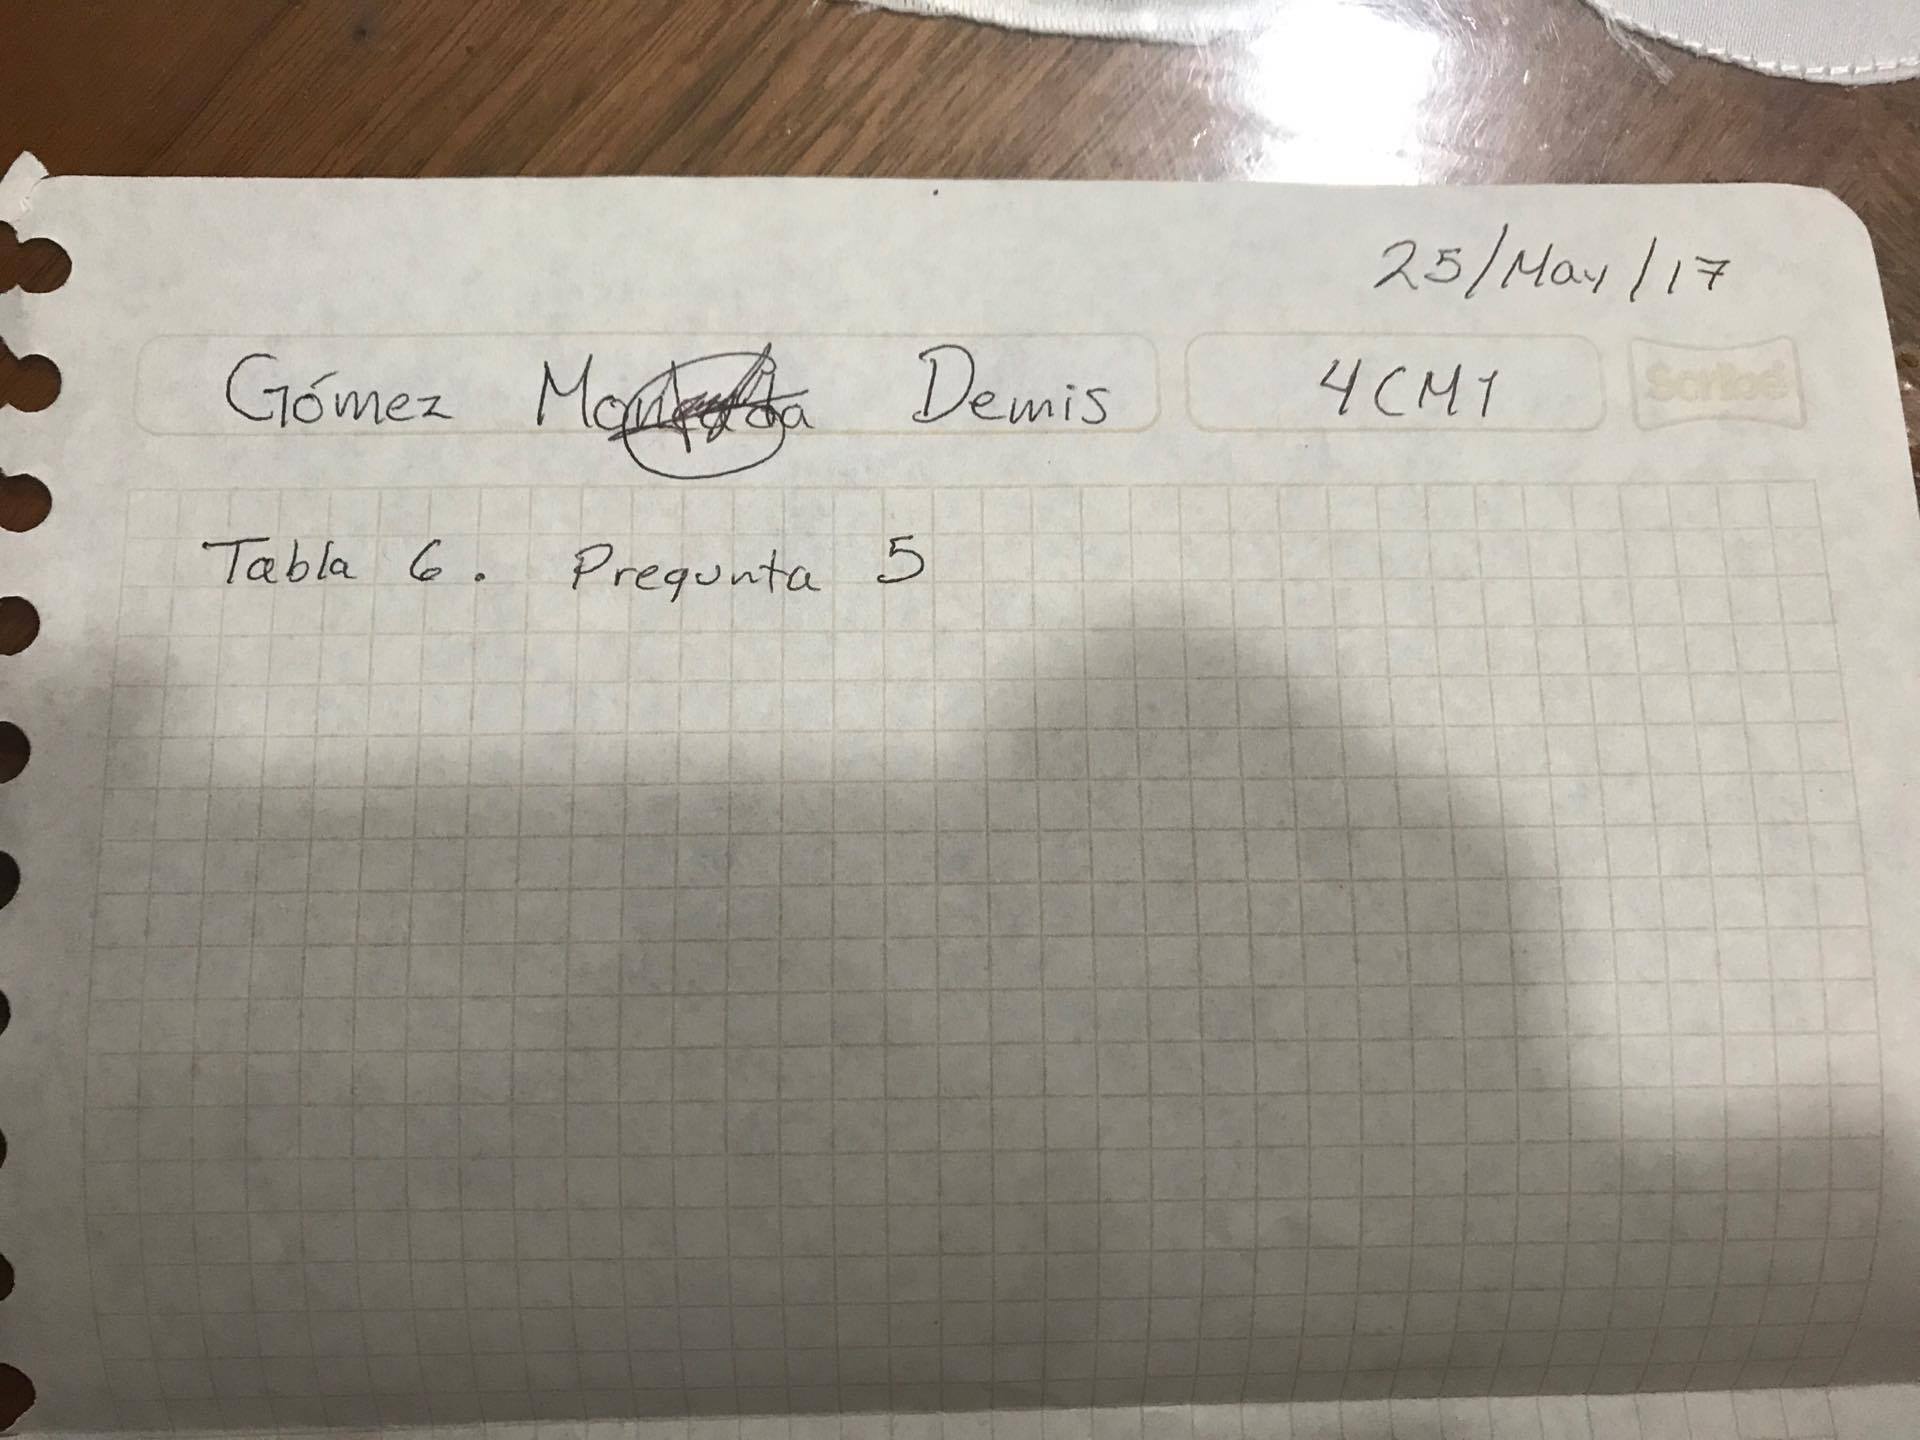 25/May/17
Gómez Demis 4CM1
Scribe
Tabla 6. Pregunta 5